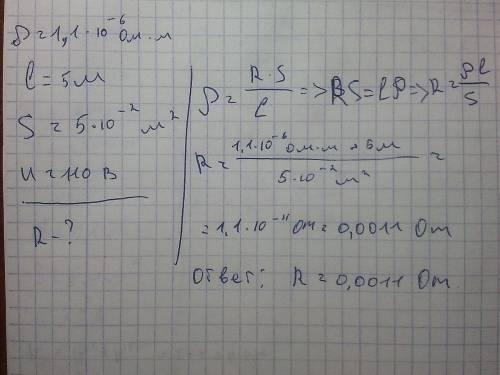 ρ = 1,1·10⁻⁶ Ом·м
l = 5 м
S = 5·10⁻² м²
U = 110 В
R - ?
ρ = R·S / l => RS = lρ => R = ρl / S
R = 1,1·10⁻⁶ Ом·м * 5м / 5·10⁻² м² =
= 1,1·10⁻⁴ Ом = 0,0011 Ом
Ответ: R = 0,0011 Ом.